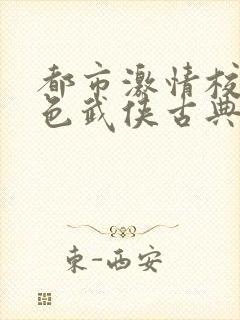 都市激情校
色武侠古典
东-西安